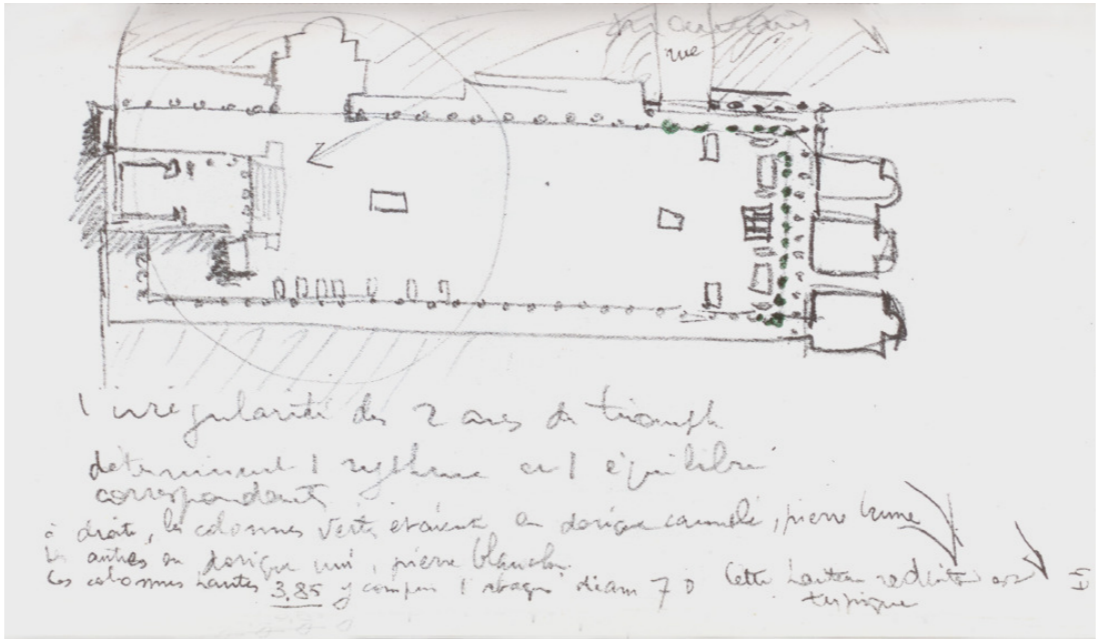 rue
l'irrégularité des 2 arcs de triomph
déterminent l rythme et l équilibre
correspondants
à droite, les colonnes vertes étaient en dorique cannelé, pierre brune
les autres en dorique uni, pierre blanche
Ces colonnes hautes 3,85 y compris l abaque diam 70 Cette hauteur réduite est
typique